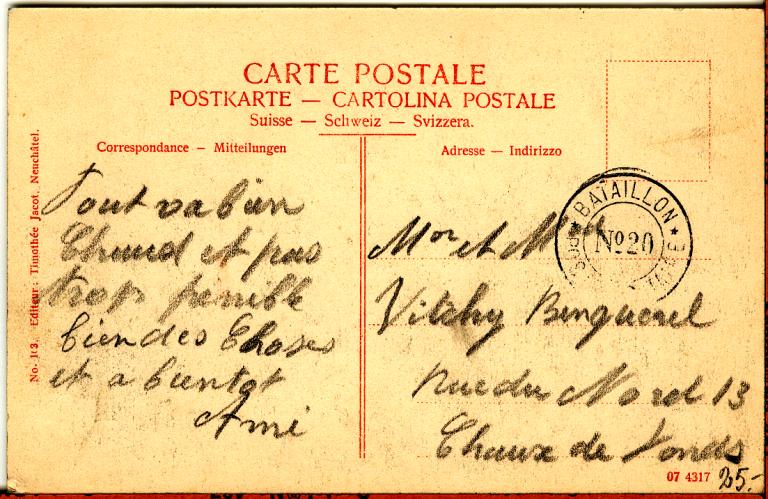 CARTE POSTALE
POSTKARTE — CARTOLINA POSTALE
Suisse — Schweiz — Svizzera.
Correspondance — Mitteilungen
Adresse — Indirizzo
No. 113. Editeur: Timothée Jacot, Neuchâtel.
Tout va bien
Chaud et pas
trop penible
bien des choses
et a bientot
Ami
BATAILLON
No 20
Mr et Mme
Vitchy Benguerel
Rue du Nord 13
Chaux de Fonds
07 4317
25.-